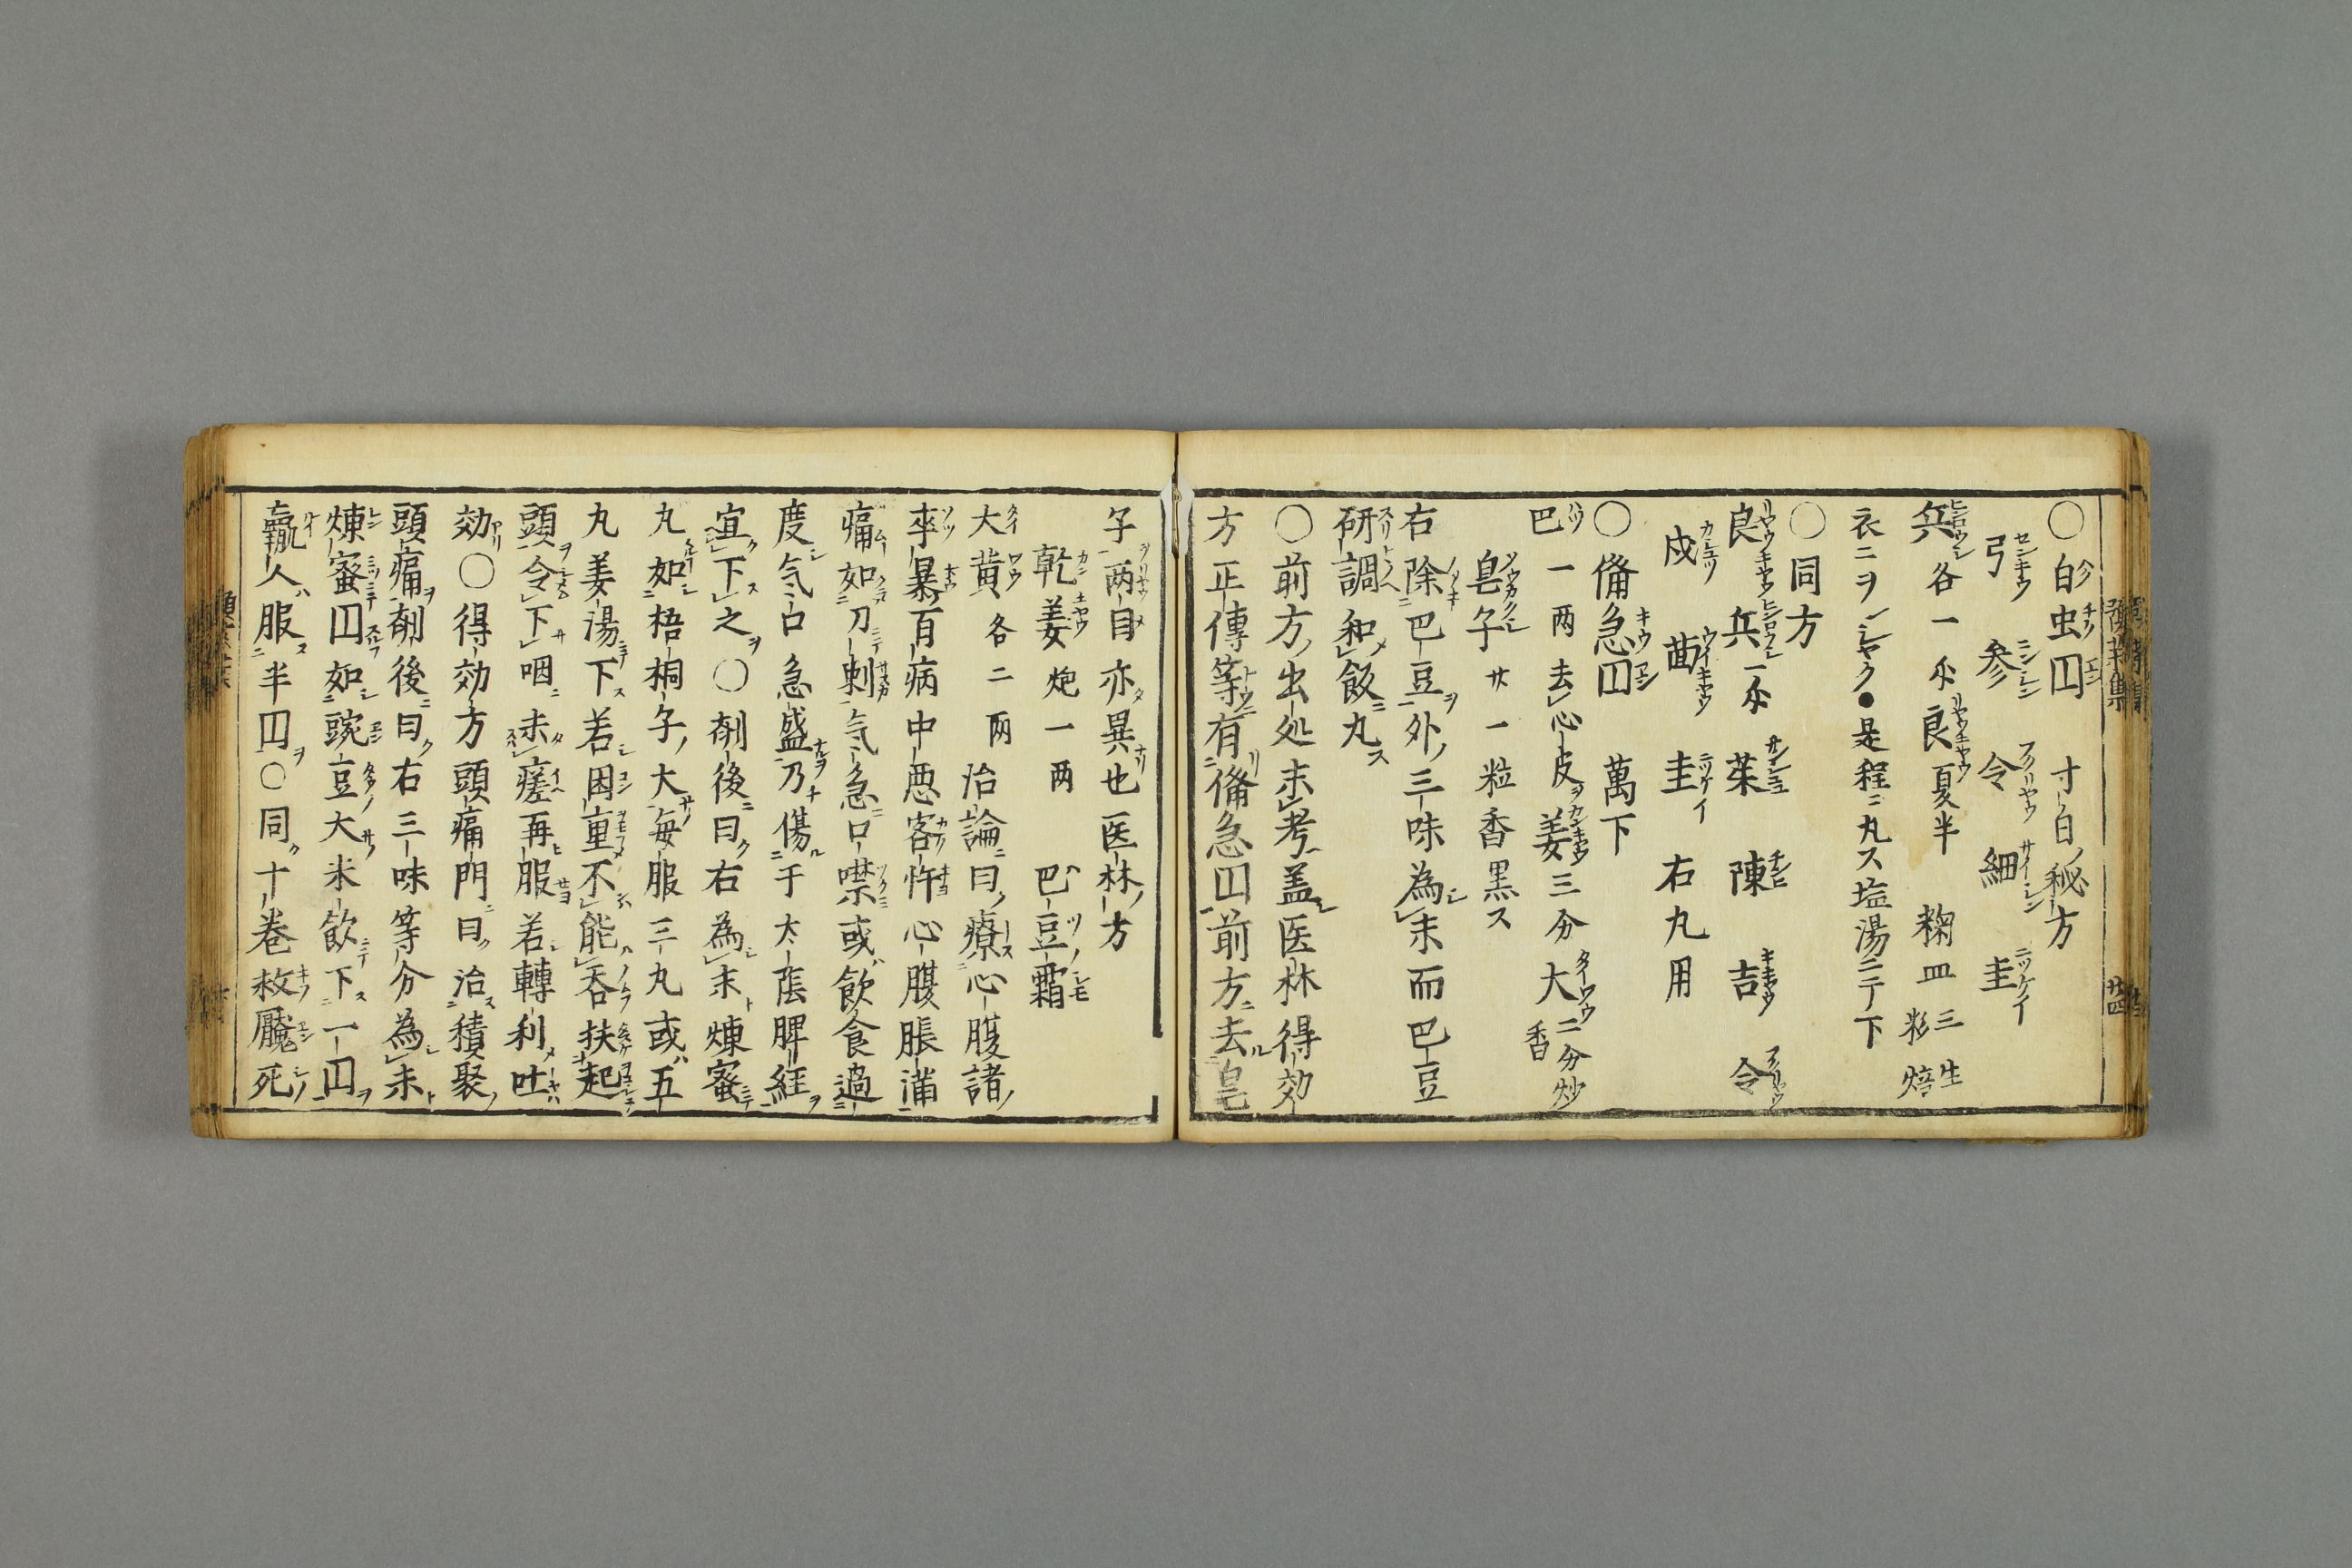 〇白虫囙 寸白秘方
弓 参 令 細 圭
兵 各一 良 夏半 麹 皿 三 生
衣ニヲ 是程ニ丸ス塩湯ニテ下
〇同方
良 兵 一 茱 陳 吉 令
茴 圭 右丸用
〇備急囙 萬下
巴一両去心皮姜三分大二分炒
皂子廿一粒香黒ス
右除巴豆外三味為末而巴豆
研調和飯丸
〇前方出処未考盖医林得効
方正傳等有備急囙前方去皂
子両目亦異也医林方
乾姜炮一両 巴豆霜
大黄各二両 治論曰療心腹諸
率暴百病中悪客忤心腹脹満
痛如刀刺気急口噤或飲食過
度気口急盛乃傷于太陰脾経
宜下之〇剤後曰右為末煉蜜
丸如梧桐子大毎服三丸或五
丸姜湯下若困重不能呑扶起
頭令下咽未瘥再服若轉利吐
効〇得効方頭痛門曰治積聚
頭痛剤後曰右三味等分為末
煉蜜囙如豌豆大米飲下一囙
羸人服半囙〇同十巻救魘死